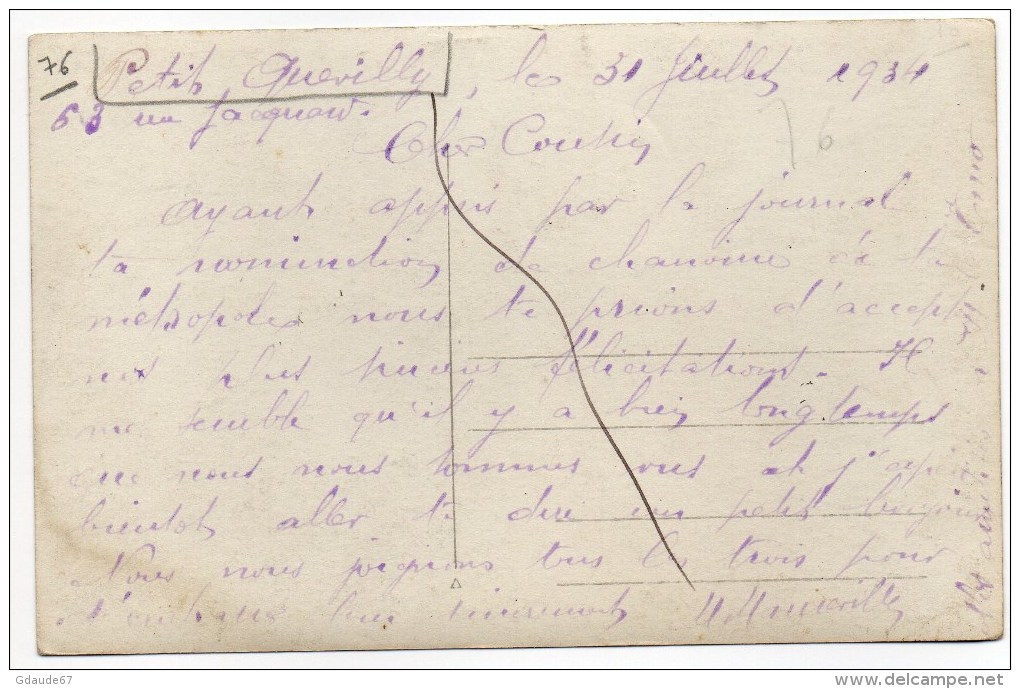 76
Petit Quevilly, le 31 Juillet 1934
63 rue Jacquard.
Cher Cousin
Ayant appris par le journal
ta nomination de chanoine de la
métropole nous te prions d'accepter
nos plus sincères félicitations. Il
me semble qu'il y a bien longtemps
que nous nous sommes vus et j'espère
bientot aller te dire un petit bonjour
Nous nous joignons tous les trois pour
t'embrasser bien sincèrement
76
Gdaude67
delcampe.net